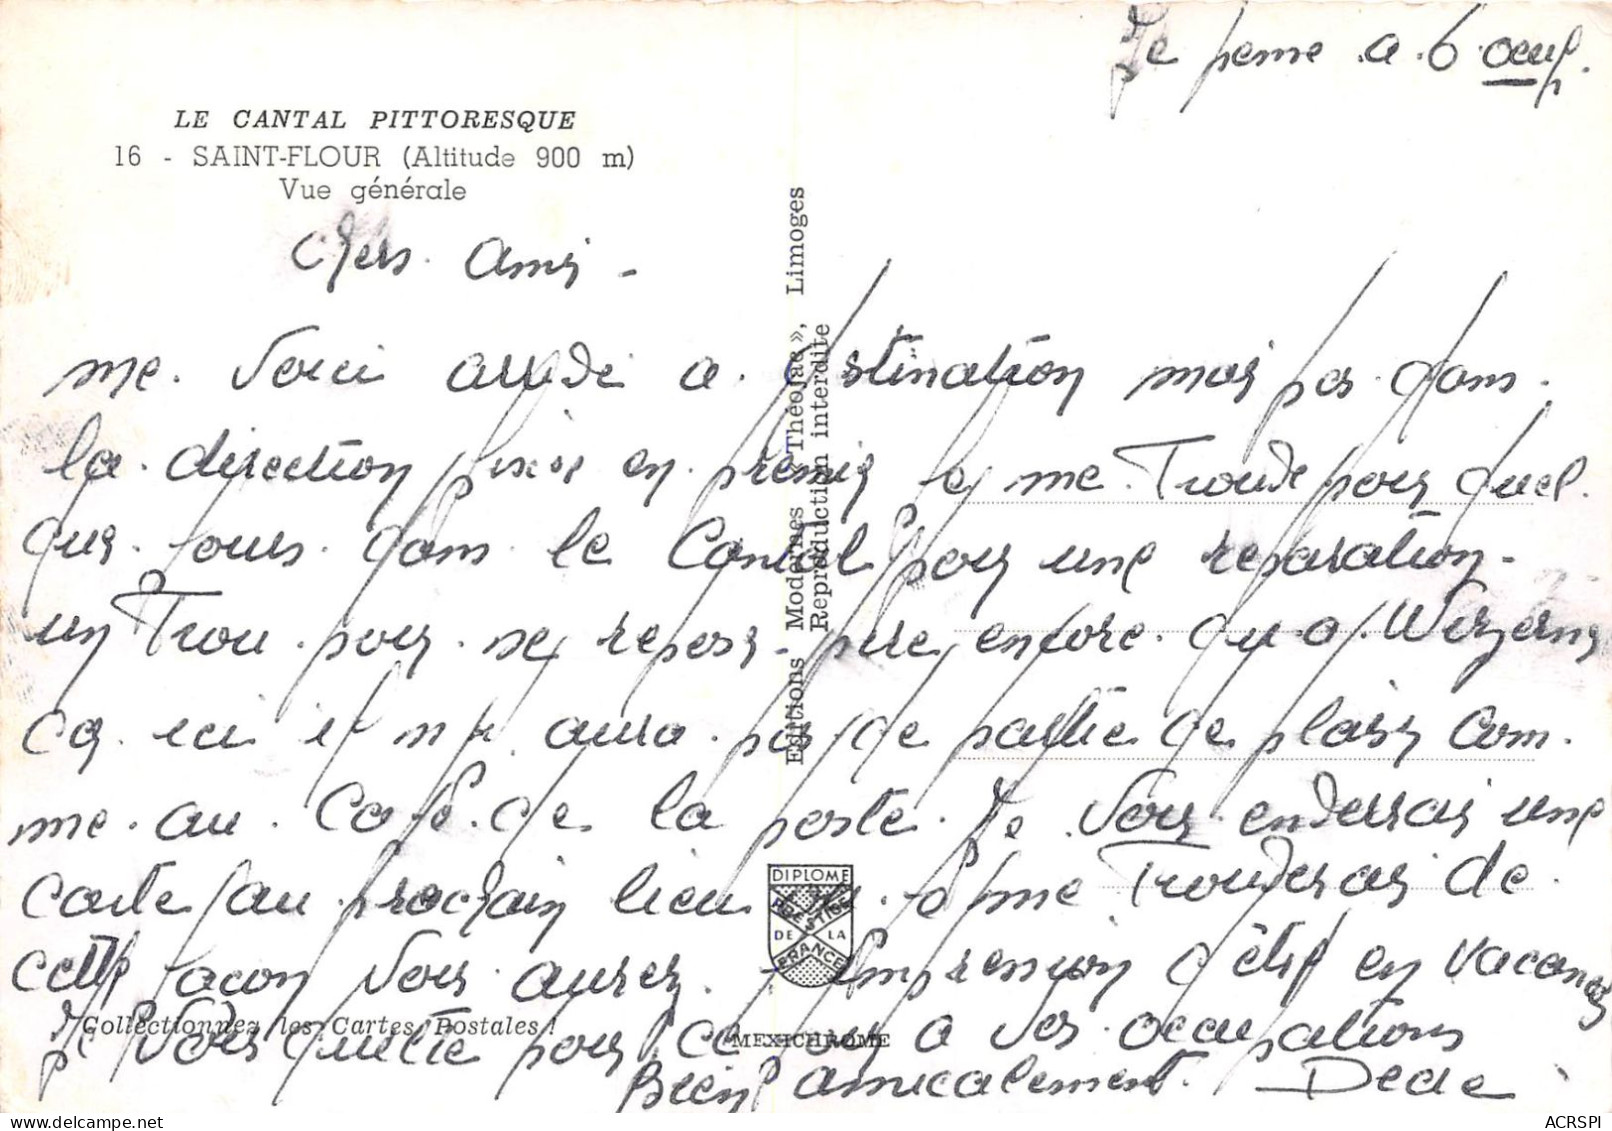 Je pense a 6 oeuf.
LE CANTAL PITTORESQUE
16 - SAINT-FLOUR (Altitude 900 m)
Vue générale
Chers Amis -
me voici arrivé a destination mais pas dans
la direction en premis je me trouve pour quel
que jours dans le Cantal pour une reparation
un Trou pour se reposer pire encore qu a Wizernes
ici il n y aura pas de partie de plaisir com
me au Café de la poste. Je vous enverrais une
carte au prochain lieu ou me Trouverais de
cette façon vous aurez l impression d être en vacances
Je vous quitte pour ce a vos occupations
Bien amicalement. Dede
Collectionnez les Cartes Postales !
Editions Modernes « Théojac », Limoges
Reproduction interdite
DIPLOME
PRESTIGE
DE LA
FRANCE
MEXICHROME
ACRSPI